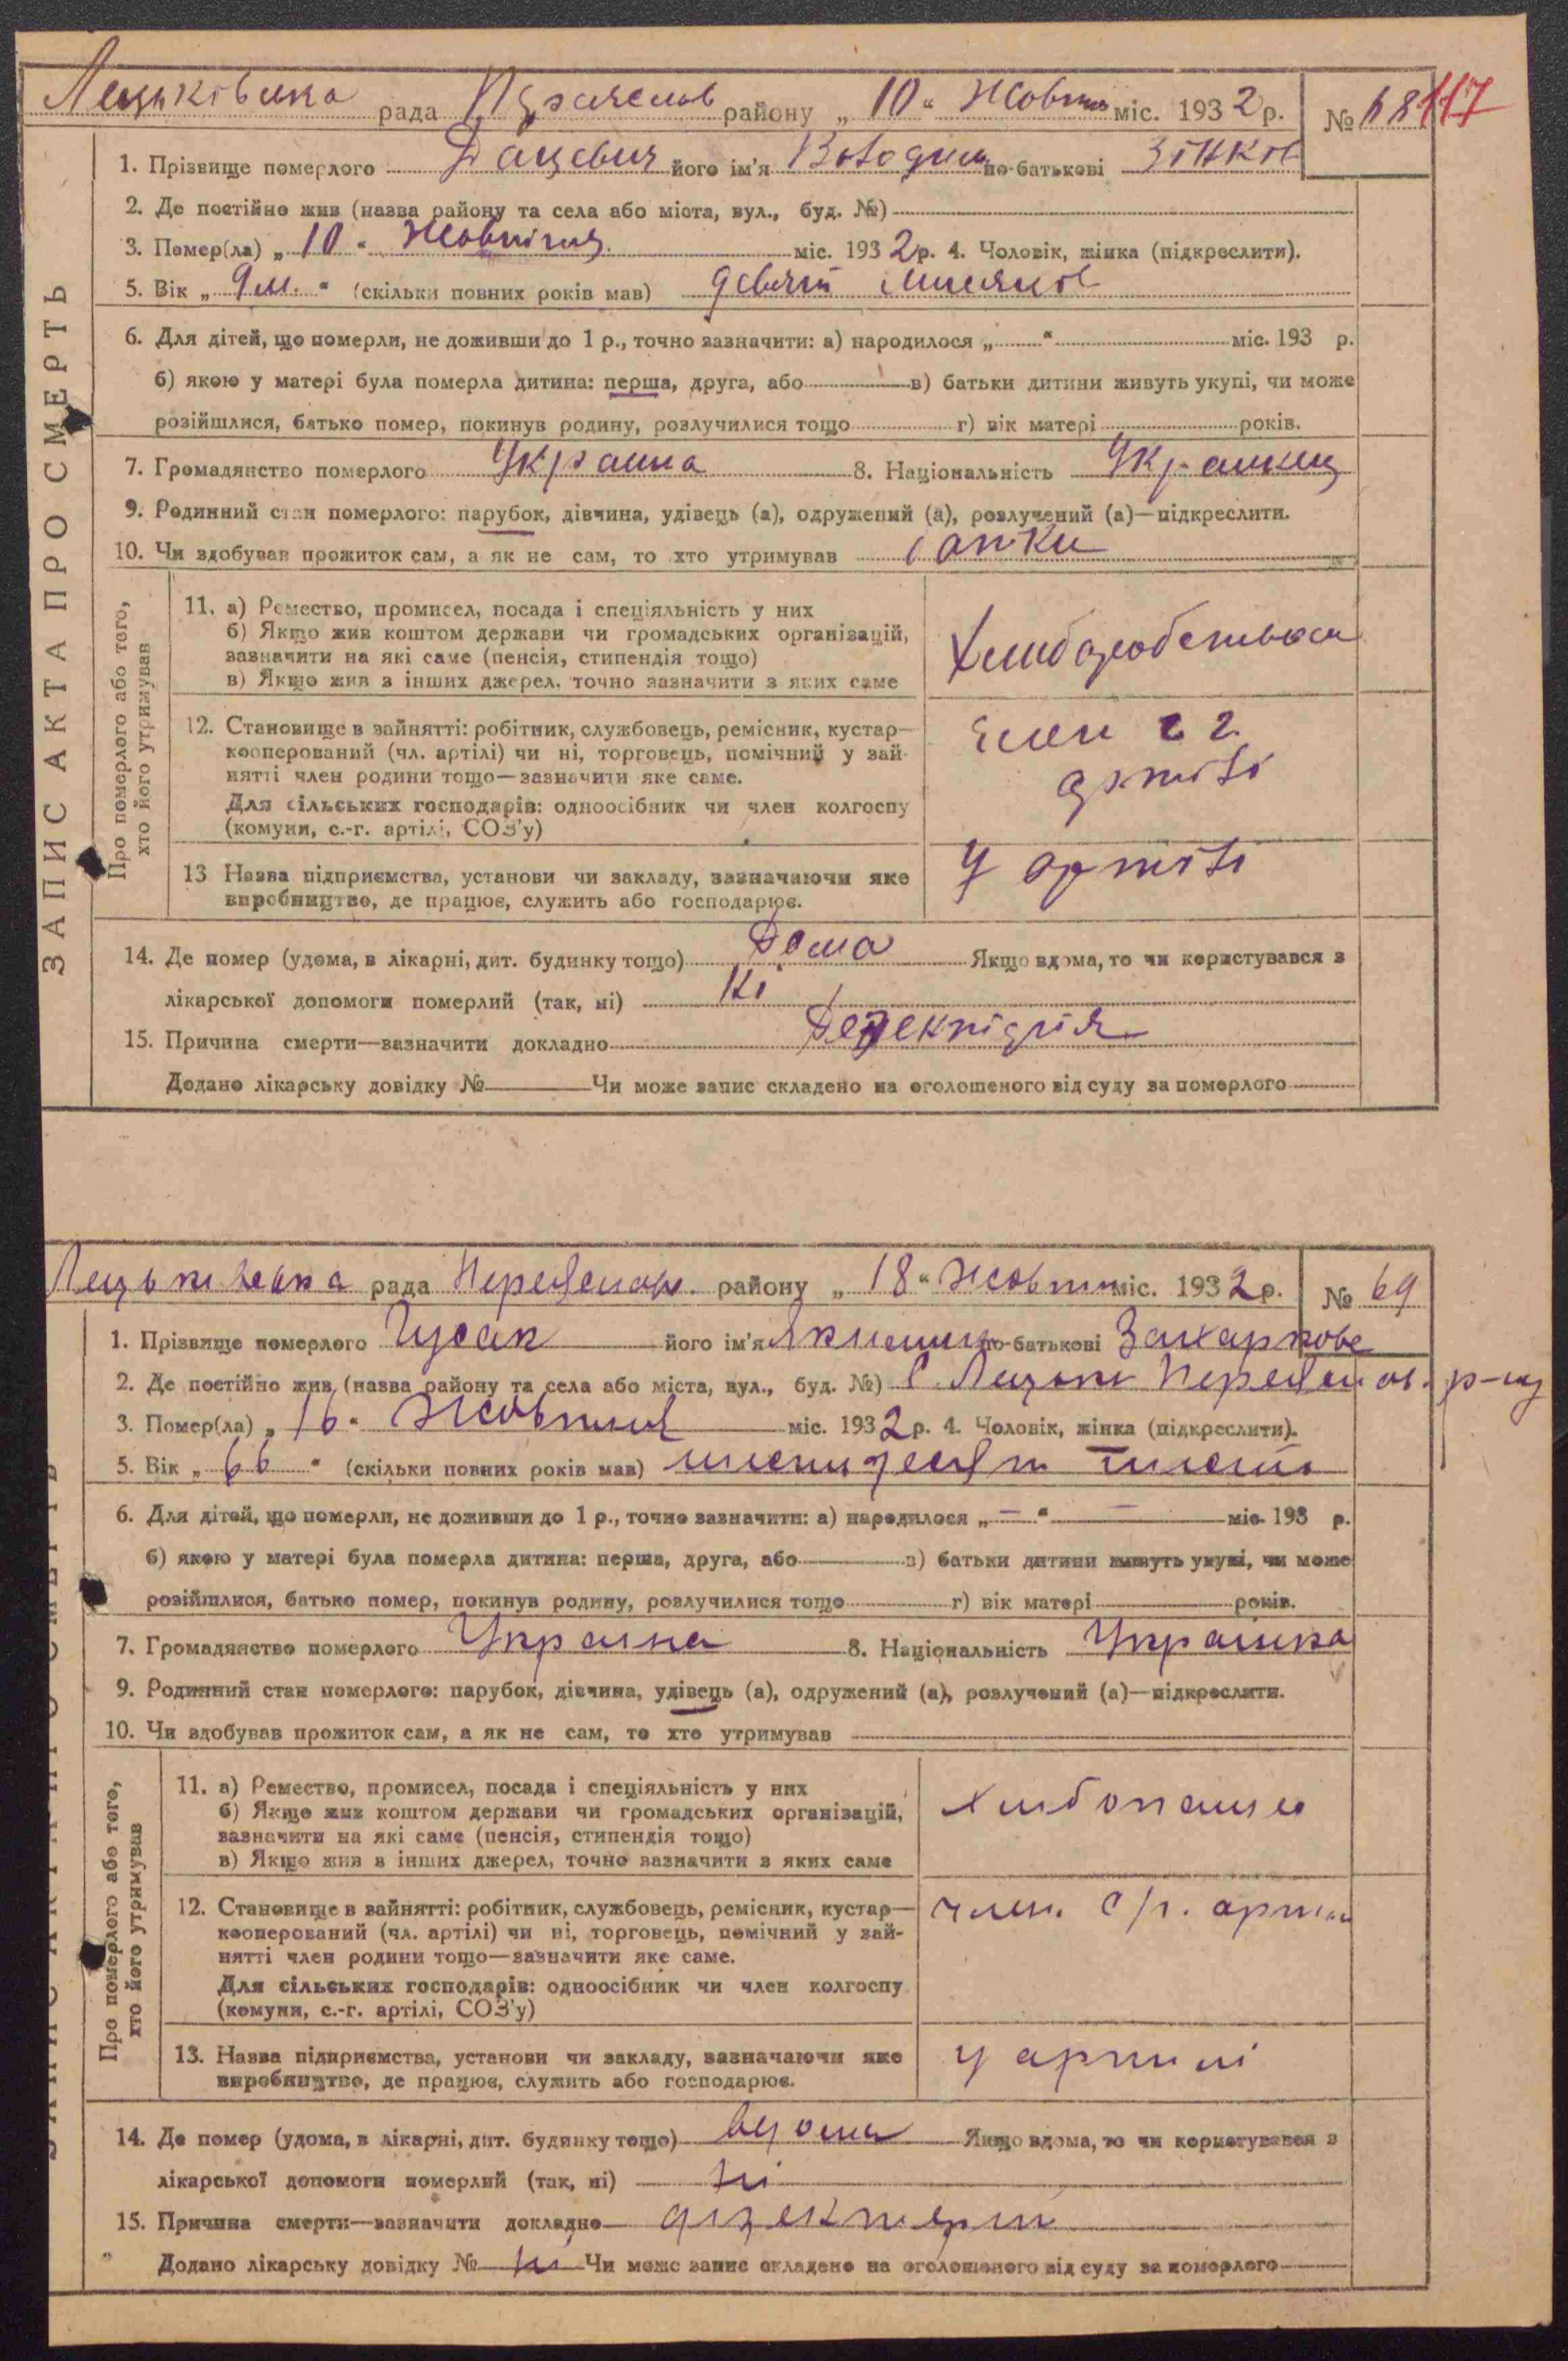 рада району „ 10 “ Жовтня міс. 1932 р. № 68 117
ЗАПИС АКТА ПРО СМЕРТЬ
1. Прізвище померлого Дацевич його ім'я по-батькові Зінков
2. Де постійно жив (назва району та села або міста, вул., буд. №)
3. Помер(ла) „ 10 “ Жовтня міс. 1932 р. 4. Чоловік, жінка (підкреслити).
5. Вік „ 9 м. “ (скільки повних років мав) девять
6. Для дітей, що померли, не доживши до 1 р., точно зазначити: а) народилося „ “ міс. 193 р.
б) якою у матері була померла дитина: перша, друга, або в) батьки дитини живуть укупі, чи може
розійшлися, батько помер, покинув родину, розлучилися тощо г) вік матері років.
7. Громадянство померлого Украина 8. Національність
9. Родинний стан померлого: парубок, дівчина, удівець (а), одружений (а), розлучений (а)—підкреслити.
10. Чи здобував прожиток сам, а як не сам, то хто утримував
Про померлого або того,
хто його утримував
11. а) Ремество, промисел, посада і спеціяльність у них
б) Якщо жив коштом держави чи громадських організацій,
зазначити на які саме (пенсія, стипендія тощо)
в) Якщо жив з інших джерел, точно зазначити з яких саме
12. Становище в зайнятті: робітник, службовець, ремісник, кустар—
кооперований (чл. артілі) чи ні, торговець, помічний у зай-
нятті член родини тощо—зазначити яке саме.
Для сільських господарів: одноосібник чи член колгоспу
(комуни, с.-г. артілі, СОЗ'у)
член с г.
артілі
13 Назва підприємства, установи чи закладу, зазначаючи яке
виробництво, де працює, служить або господарює.
У артілі
14. Де помер (удома, в лікарні, дит. будинку тощо) Дома Якщо вдома, то чи користувався з
лікарської допомоги померлий (так, ні) Ні
15. Причина смерти—зазначити докладно
Додано лікарську довідку № Чи може запис складено на оголошеного від суду за померлого
рада району „ 18 “ Жовтня міс. 1932 р. № 69
1. Прізвище померлого Гусак його ім'я по-батькові
2. Де постійно жив (назва району та села або міста, вул., буд. №) С. р-ну
3. Помер(ла) „ 16 “ Жовтня міс. 1932 р. 4. Чоловік, жінка (підкреслити).
5. Вік „ 66 “ (скільки повних років мав) шистдесят
6. Для дітей, що померли, не доживши до 1 р., точно зазначити: а) народилося „ — “ — міс. 193 р.
б) якою у матері була померла дитина: перша, друга, або в) батьки дитини живуть укупі, чи може
розійшлися, батько помер, покинув родину, розлучилися тощо г) вік матері років.
7. Громадянство померлого Украина 8. Національність Украинка
9. Родинний стан померлого: парубок, дівчина, удівець (а), одружений (а), розлучений (а)—підкреслити.
10. Чи здобував прожиток сам, а як не сам, то хто утримував
Про померлого або того,
хто його утримував
11. а) Ремество, промисел, посада і спеціяльність у них
б) Якщо жив коштом держави чи громадських організацій,
зазначити на які саме (пенсія, стипендія тощо)
в) Якщо жив з інших джерел, точно зазначити з яких саме
12. Становище в зайнятті: робітник, службовець, ремісник, кустар—
кооперований (чл. артілі) чи ні, торговець, помічний у зай-
нятті член родини тощо—зазначити яке саме.
Для сільських господарів: одноосібник чи член колгоспу
(комуни, с.-г. артілі, СОЗ'у)
член. с/г.
13. Назва підприємства, установи чи закладу, зазначаючи яке
виробництво, де працює, служить або господарює.
у артилі
14. Де помер (удома, в лікарні, дит. будинку тощо) вдома Якщо вдома, то чи користувався з
лікарської допомоги померлий (так, ні) ні
15. Причина смерти—зазначити докладно
Додано лікарську довідку № ні Чи може запис складено на оголошеного від суду за померлого